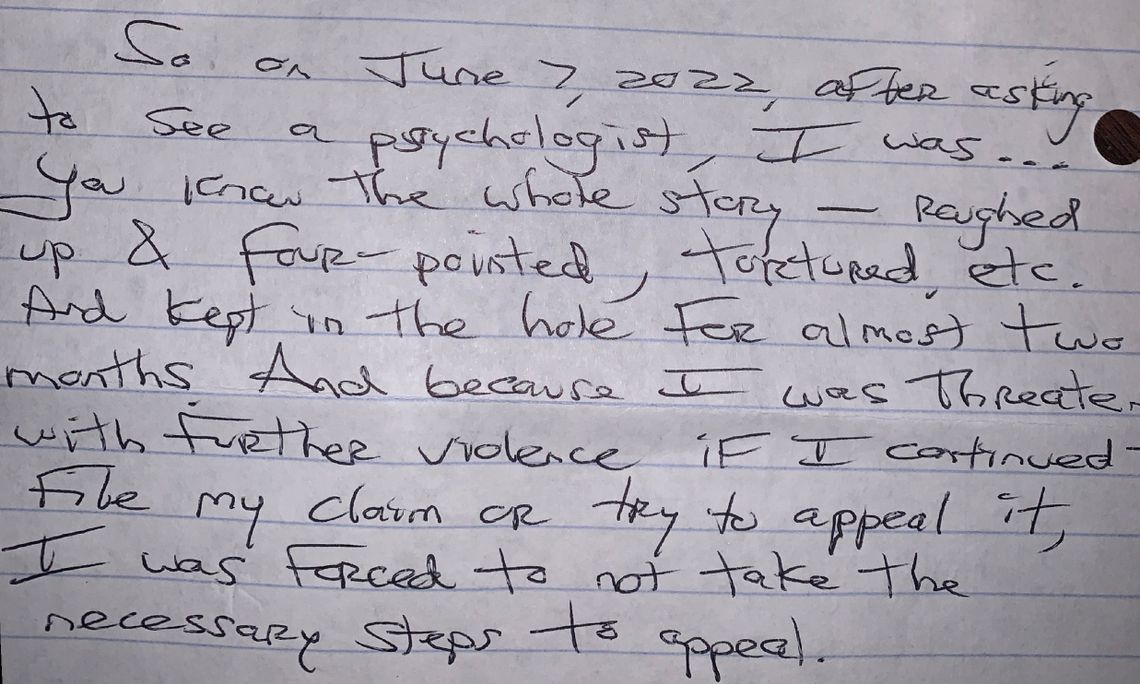 So on June 7, 2022, after asking
to see a psychologist, I was....
You know the whole story — Roughed
up & four-pointed, tortured, etc.
And kept in the hole for almost two
months. And because I was threate
with further violence if I continued
file my claim or try to appeal it,
I was forced to not take the
necessary steps to appeal.